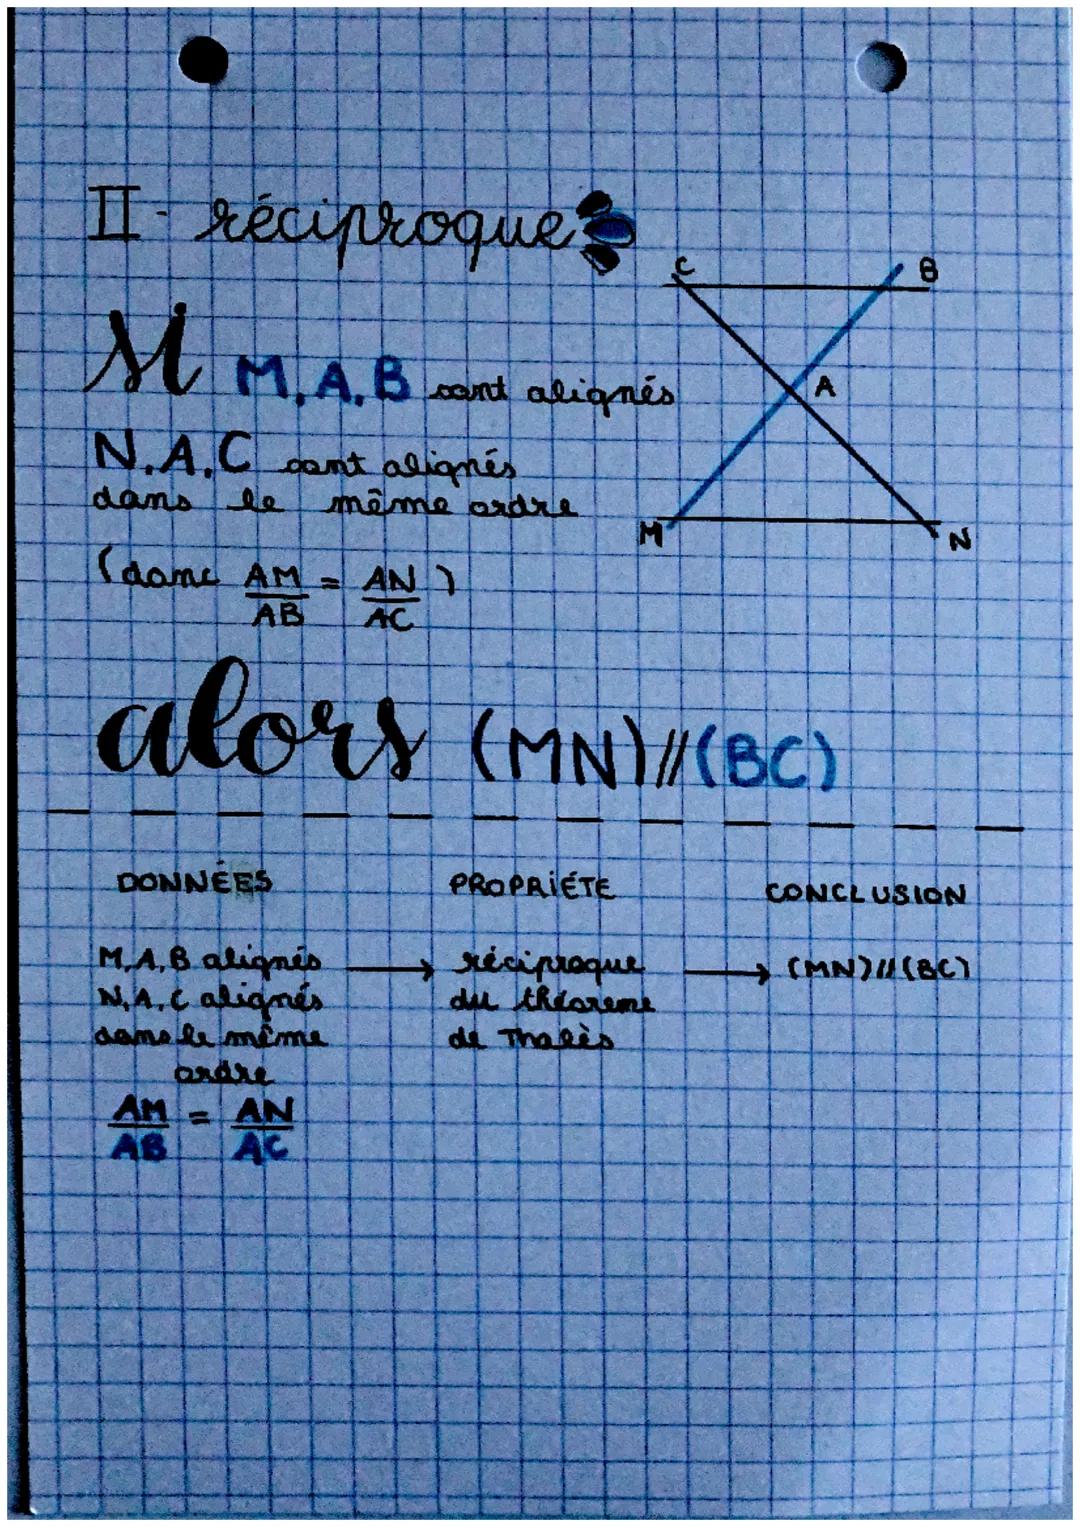 II - réciproque
C B
Si M, A, B sont alignés
A
N, A, C sont alignés
dans le même ordre
M N
(donc AM/AB = AN/AC)
alors (MN)//(BC)
DONNÉES PROPRIÉTE CONCLUSION
M, A, B alignés → réciproque → (MN)//(BC)
N, A, C alignés du théoreme
dans le même de Thalès
ordre
AM/AB = AN/AC